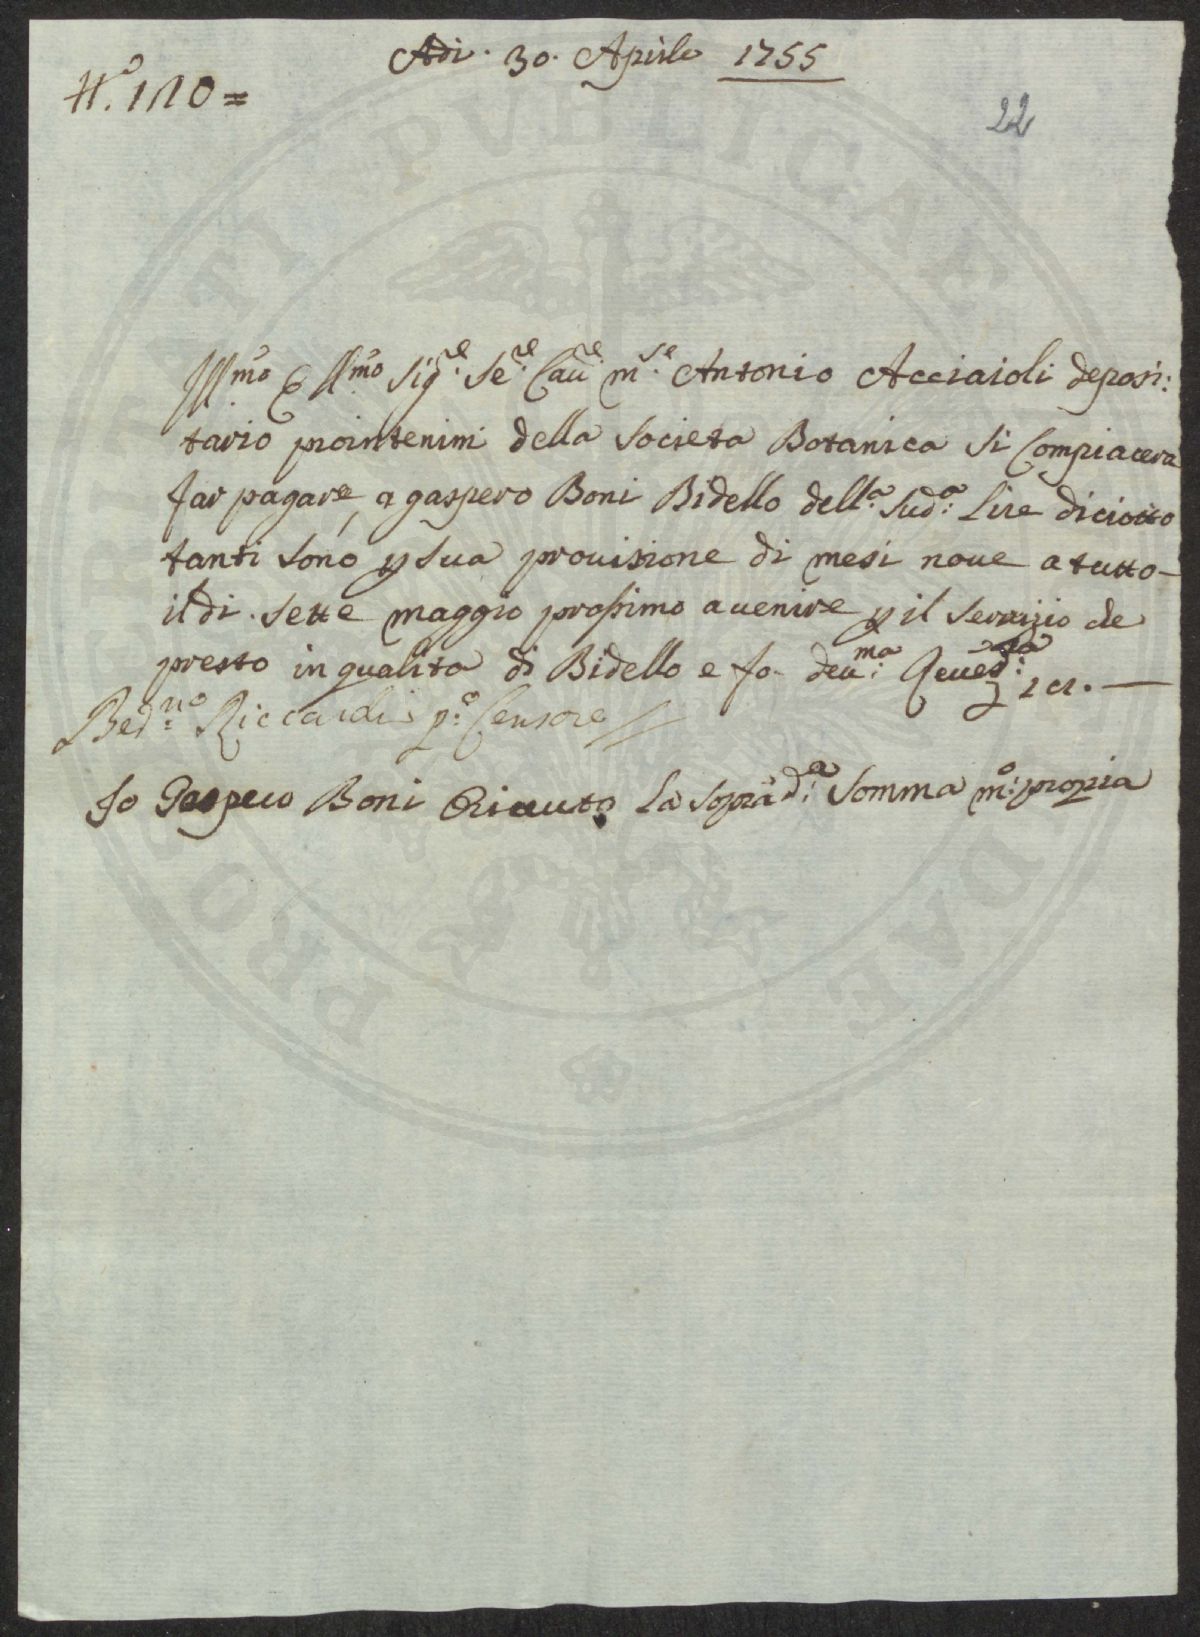 Adi. 30. Aprile 1755
N.º 110 =
22
Ill:mo e Cl:mo Sig:re Se:re Cau:re m:se Antonio Acciaioli deposi:
tario prointerim della Societa Botanica Si Compiacera
far pagare a gaspero Boni Bidello dell:a Sud:a Lire diciotto
tanti sono p sua prouisione di mesi noue a tutto-
il di. sette maggio prossimo auenire p il seruizio che
presto in qualita di Bidello e fo deu:ma
Bed:no Riccardi p:o Censore //
Io Gaspero Boni Riceuto La sopra d:a Somma m:o propria
PROSPERITATI PVBLICAE